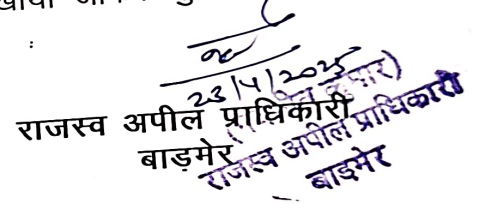 :
23/4/2025
राजस्व अपील प्राधिकारी
बाड़मेर
राजस्व अपील प्राधिकारी
बाडमेर